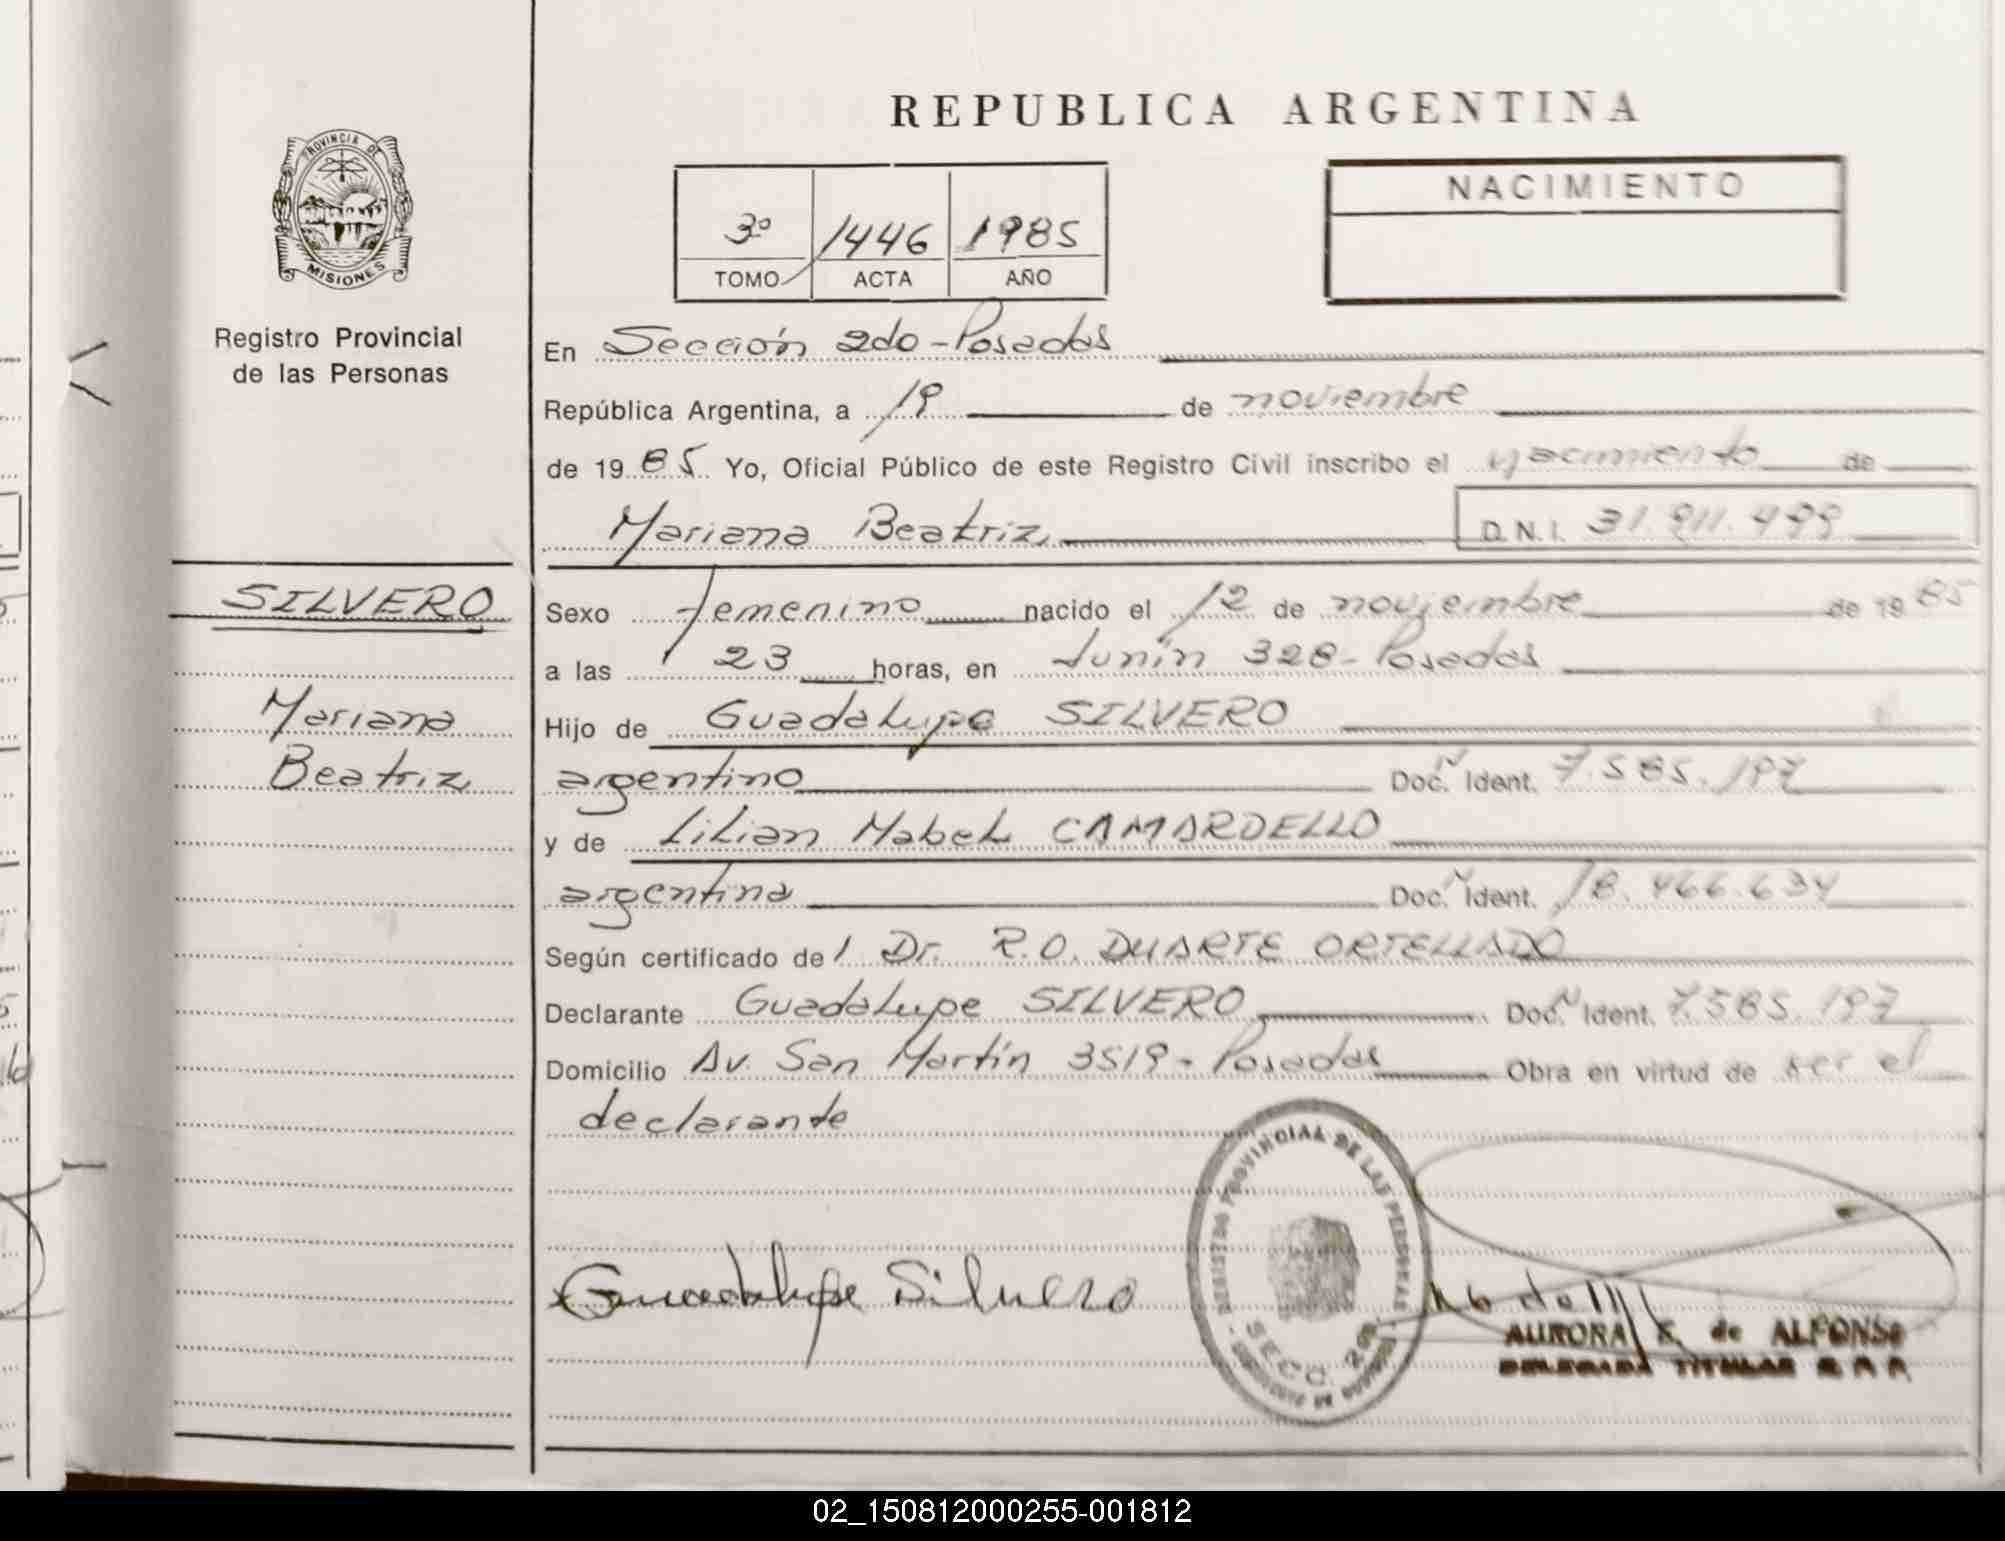 REPUBLICA ARGENTINA
PROVINCIA DE
MISIONES
Registro Provincial
de las Personas
3º 1446 1985
TOMO ACTA AÑO
NACIMIENTO
En Sección 2do - Posadas
República Argentina, a 19 de noviembre
de 1985 Yo, Oficial Público de este Registro Civil inscribo el nacimiento de
Mariana Beatriz D.N.I. 31.911.499
SILVERO
Mariana
Beatriz
Sexo femenino nacido el 12 de noviembre de 1985
a las 23 horas, en Junín 328 - Posadas
Hijo de Guadalupe SILVERO
argentino Doc. N Ident. 7.585.197
y de Lilian Mabel CAMARDELLO
argentina Doc. N Ident. 18.466.634
Según certificado de 1 Dr. R.O. DUARTE ORTELLADO
Declarante Guadalupe SILVERO Doc. N Ident. 7.585.197
Domicilio Av. San Martín 3519 - Posadas Obra en virtud de ser el
declarante
REGISTRO PROVINCIAL DE LAS PERSONAS
SECC. 2da.
Guadalupe Silvero
AURORA de ALFONSO
DELEGADA TITULAR
02_150812000255-001812